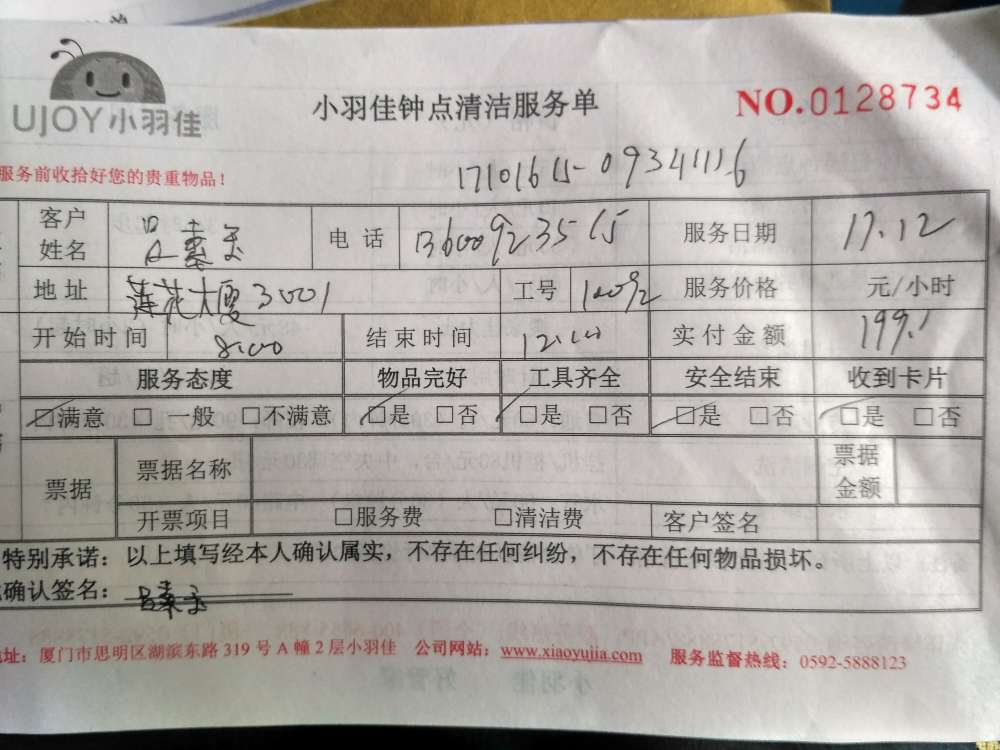 UJOY小羽佳
小羽佳钟点清洁服务单
NO.0128734
服务前收拾好您的贵重物品！
17101615-09341116
客户姓名 电话 13600923515 服务日期 17.12
地址 莲花大厦3001 工号 服务价格 元/小时
开始时间 8:00 结束时间 12:00 实付金额 199.1
服务态度 物品完好 工具齐全 安全结束 收到卡片
☑满意 □一般 □不满意 ☑是 □否 ☑是 □否 ☑是 □否 ☑是 □否
票据 票据名称 票据金额
开票项目 □服务费 □清洁费 客户签名
特别承诺：以上填写经本人确认属实，不存在任何纠纷，不存在任何物品损坏。
确认签名：
地址：厦门市思明区湖滨东路 319 号 A 幢 2 层小羽佳 公司网站：www.xiaoyujia.com 服务监督热线：0592-5888123